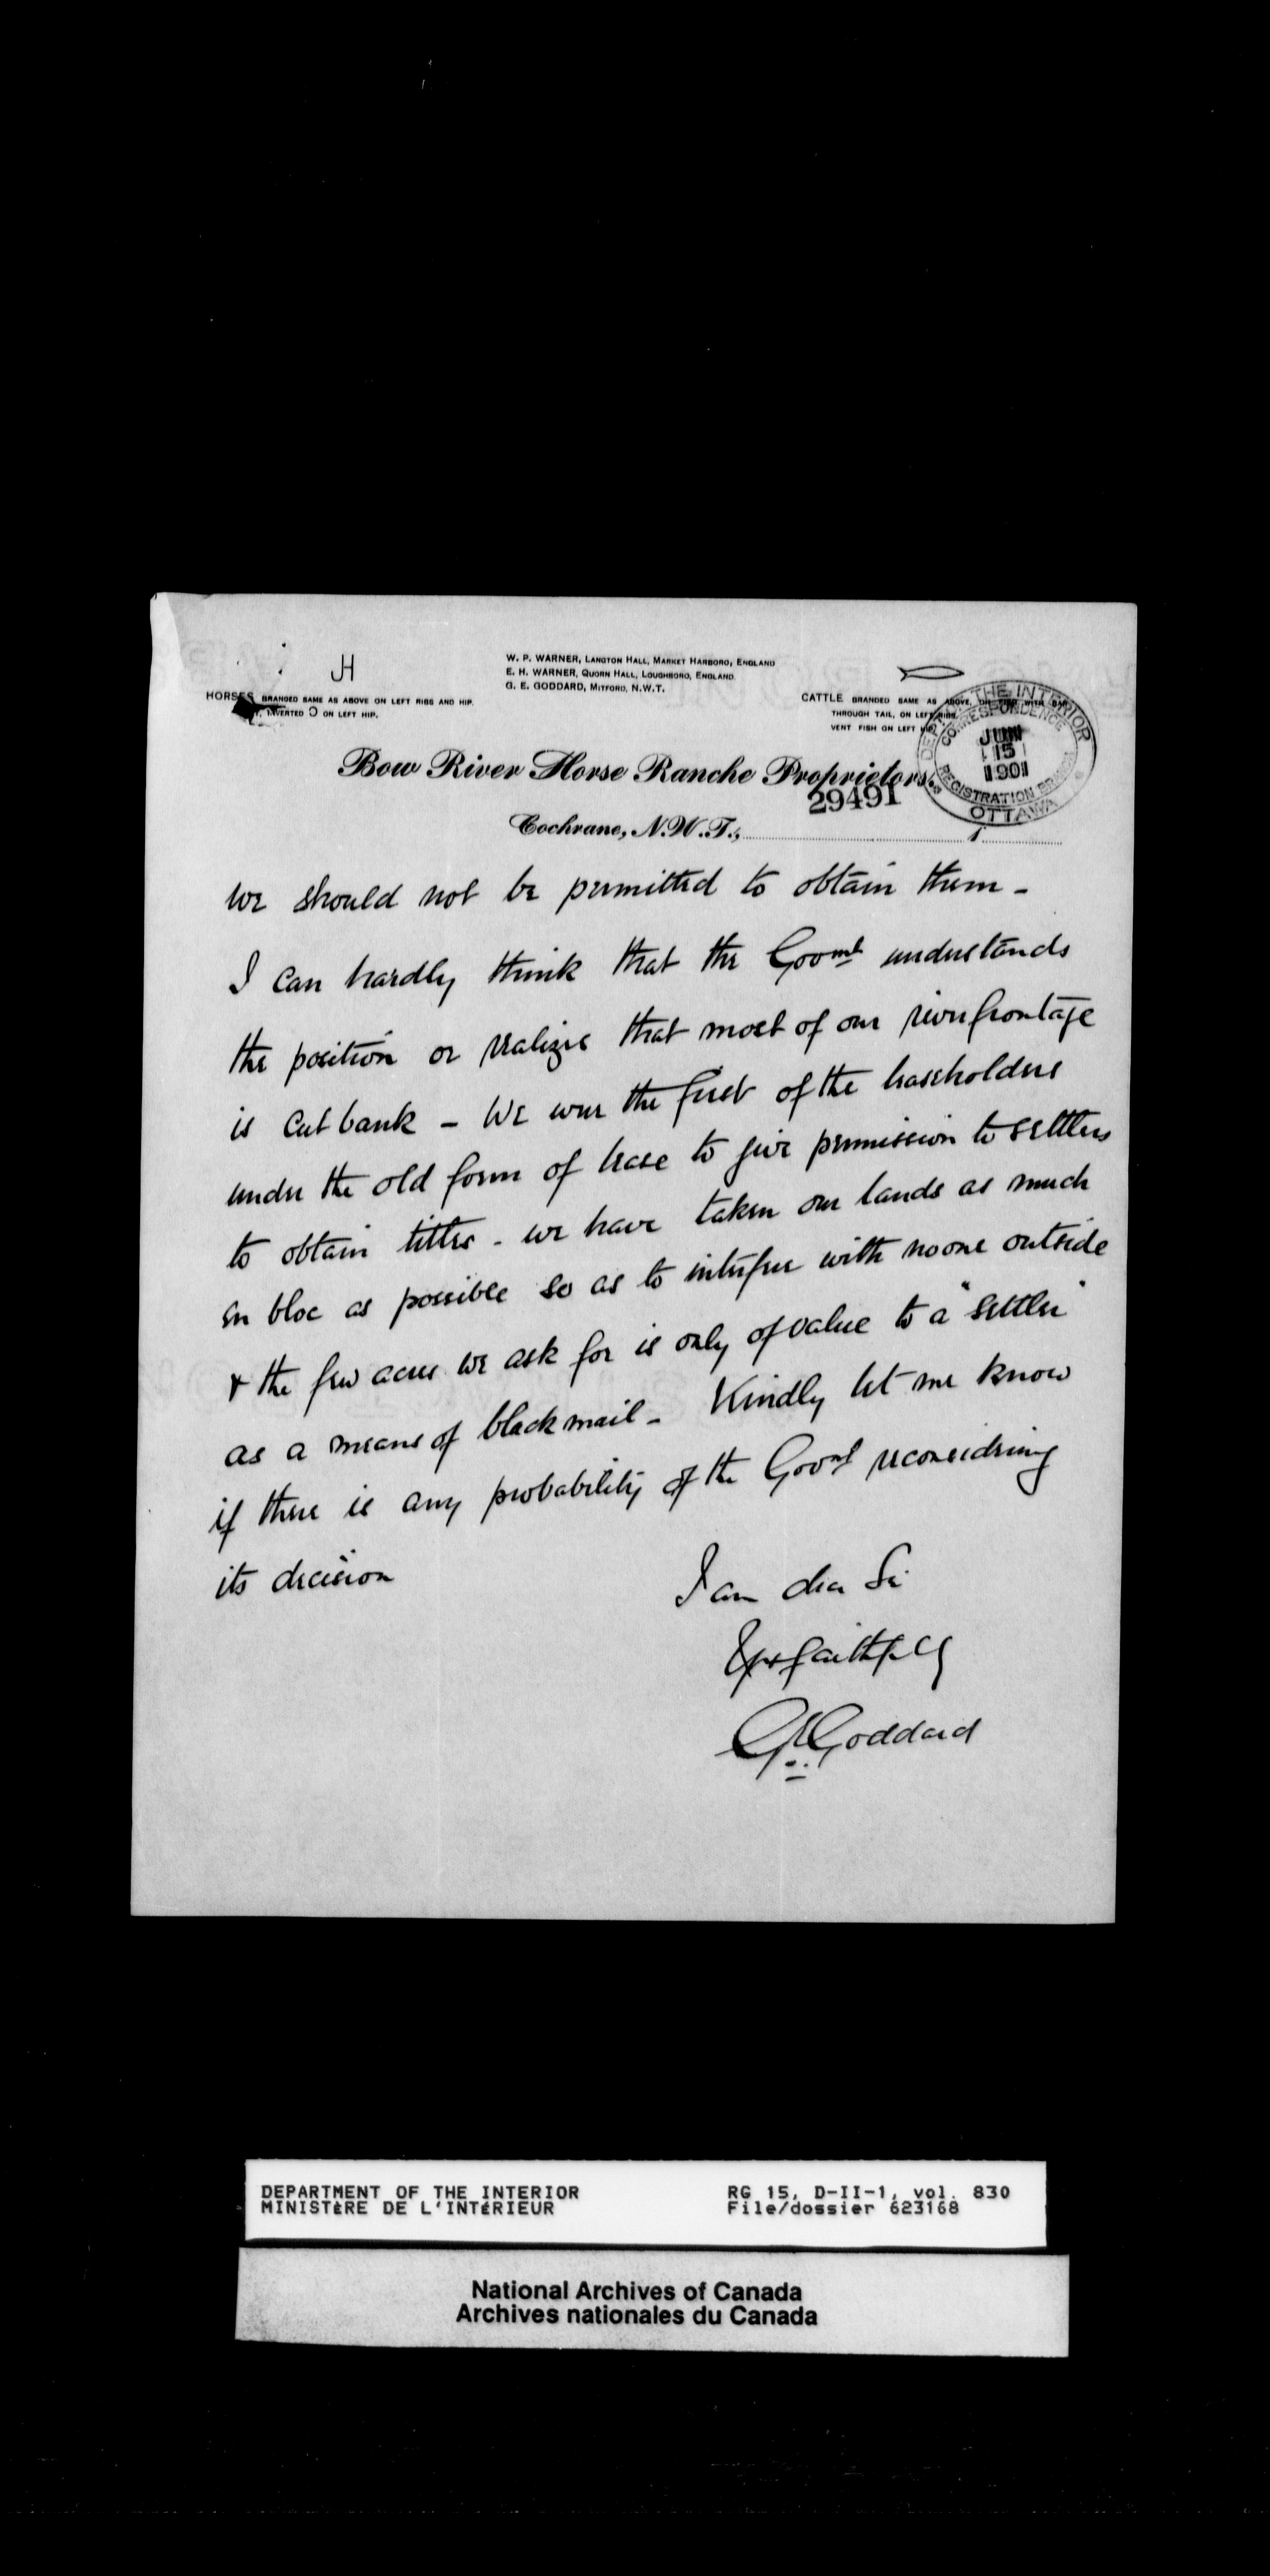 W. P. WARNER, LANGTON HALL, MARKET HARBORO, ENGLAND
E. H. WARNER, QUORN HALL, LOUGHBORO, ENGLAND.
G. E. GODDARD, MITFORD, N.W.T.
HORSES BRANDED SAME AS ABOVE ON LEFT RIBS AND HIP.
INVERTED Ↄ ON LEFT HIP.
CATTLE BRANDED SAME AS ABOVE, WITH
THROUGH TAIL, ON LEFT RIBS
VENT FISH ON LEFT HIP
DEPT OF THE INTERIOR
CORRESPONDENCE
JUN
15
1901
REGISTRATION BRANCH
OTTAWA
Bow River Horse Ranche Proprietors.
29491
Cochrane, N.W.T., 1
we should not be permitted to obtain them -
I can hardly think that the Govmt understands
the position or realizes that most of our riverfrontage
is cut bank - We were the first of the leaseholders
under the old form of lease to give permission to settlers
to obtain titles - we have taken our lands as much
en bloc as possible so as to interfere with noone outside
& the few acres we ask for is only of value to a "settler"
as a means of blackmail - Kindly let me know
if there is any probability of the Govmt reconsidering
its decision
I am dear Sir
Yrs faithfully
GEGoddard
DEPARTMENT OF THE INTERIOR RG 15, D-II-1, vol. 830
MINISTÈRE DE L'INTÉRIEUR File/dossier 623168
National Archives of Canada
Archives nationales du Canada